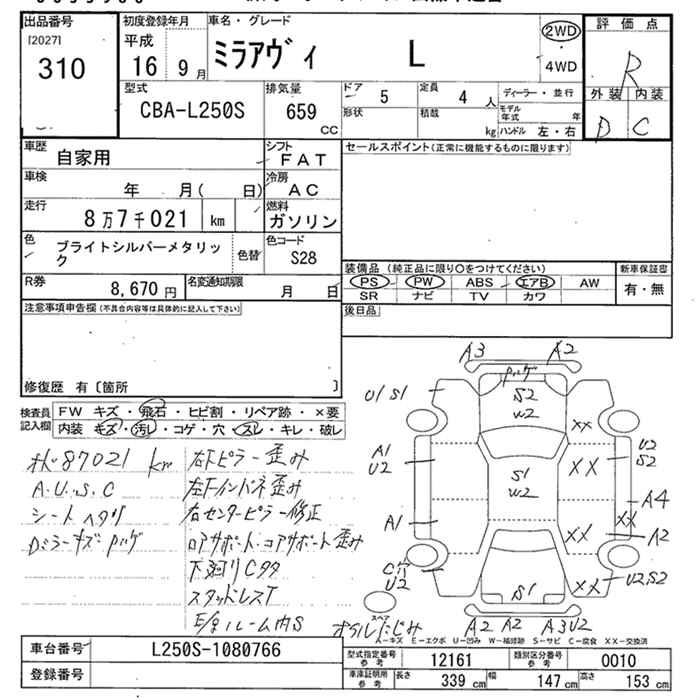 出品番号
[2027]
310
初度登録年月
平成
16 9月
車名・グレード
ミラアヴィ L
2WD
4WD
評価点
R
外装 内装
D C
型式
CBA-L250S
排気量
659
cc
ドア
5
定員
4 人
形状
積載
kg
ディーラー・並行
モデル年式 年
ハンドル 左・右
車歴
自家用
シフト
FAT
車検
年 月( 日)
冷房
AC
走行
8万7千021 km
燃料
ガソリン
色
ブライトシルバーメタリック
色替
色コード
S28
R券
8,670 円
名変通知期限
月 日
セールスポイント(正常に機能するものに限ります)
装備品 (純正品に限り○をつけてください)
PS PW ABS エアB AW
SR ナビ TV カワ
新車保証書
有・無
後日品
注意事項申告欄(不具合内容等は具体的に記入して下さい)
修復歴 有〔箇所 〕
検査員記入欄
FW キズ・飛石・ヒビ割・リペア跡・×要
内装 キズ・汚れ・コゲ・穴・スレ・キレ・破レ
87021 km
A.U.S.C
シートヘタリ
Dミラーキズハゲ
右下ピラー歪み
左下インパネ歪み
右センターピラー修正
ロアサポート・コアサポート歪み
下廻りCタタ
スタッドレスT
A3 A2
ハゲ
U1 S1
S2
W2
XX
A1
U2
S1
W2
XX
U2
S2
A4
XX
A1
XX
A2
C穴
U2
XX
U2,S2
S1
スペア
A2 A2 A3U2
A-キズ E-エクボ U-凹み W-補修跡 S-サビ C-腐食 XX-交換済
車台番号
L250S-1080766
登録番号
型式指定番号 参考
12161
類別区分番号 参考
0010
車庫証明用 参考
長さ 339 cm
幅 147 cm
高さ 153 cm